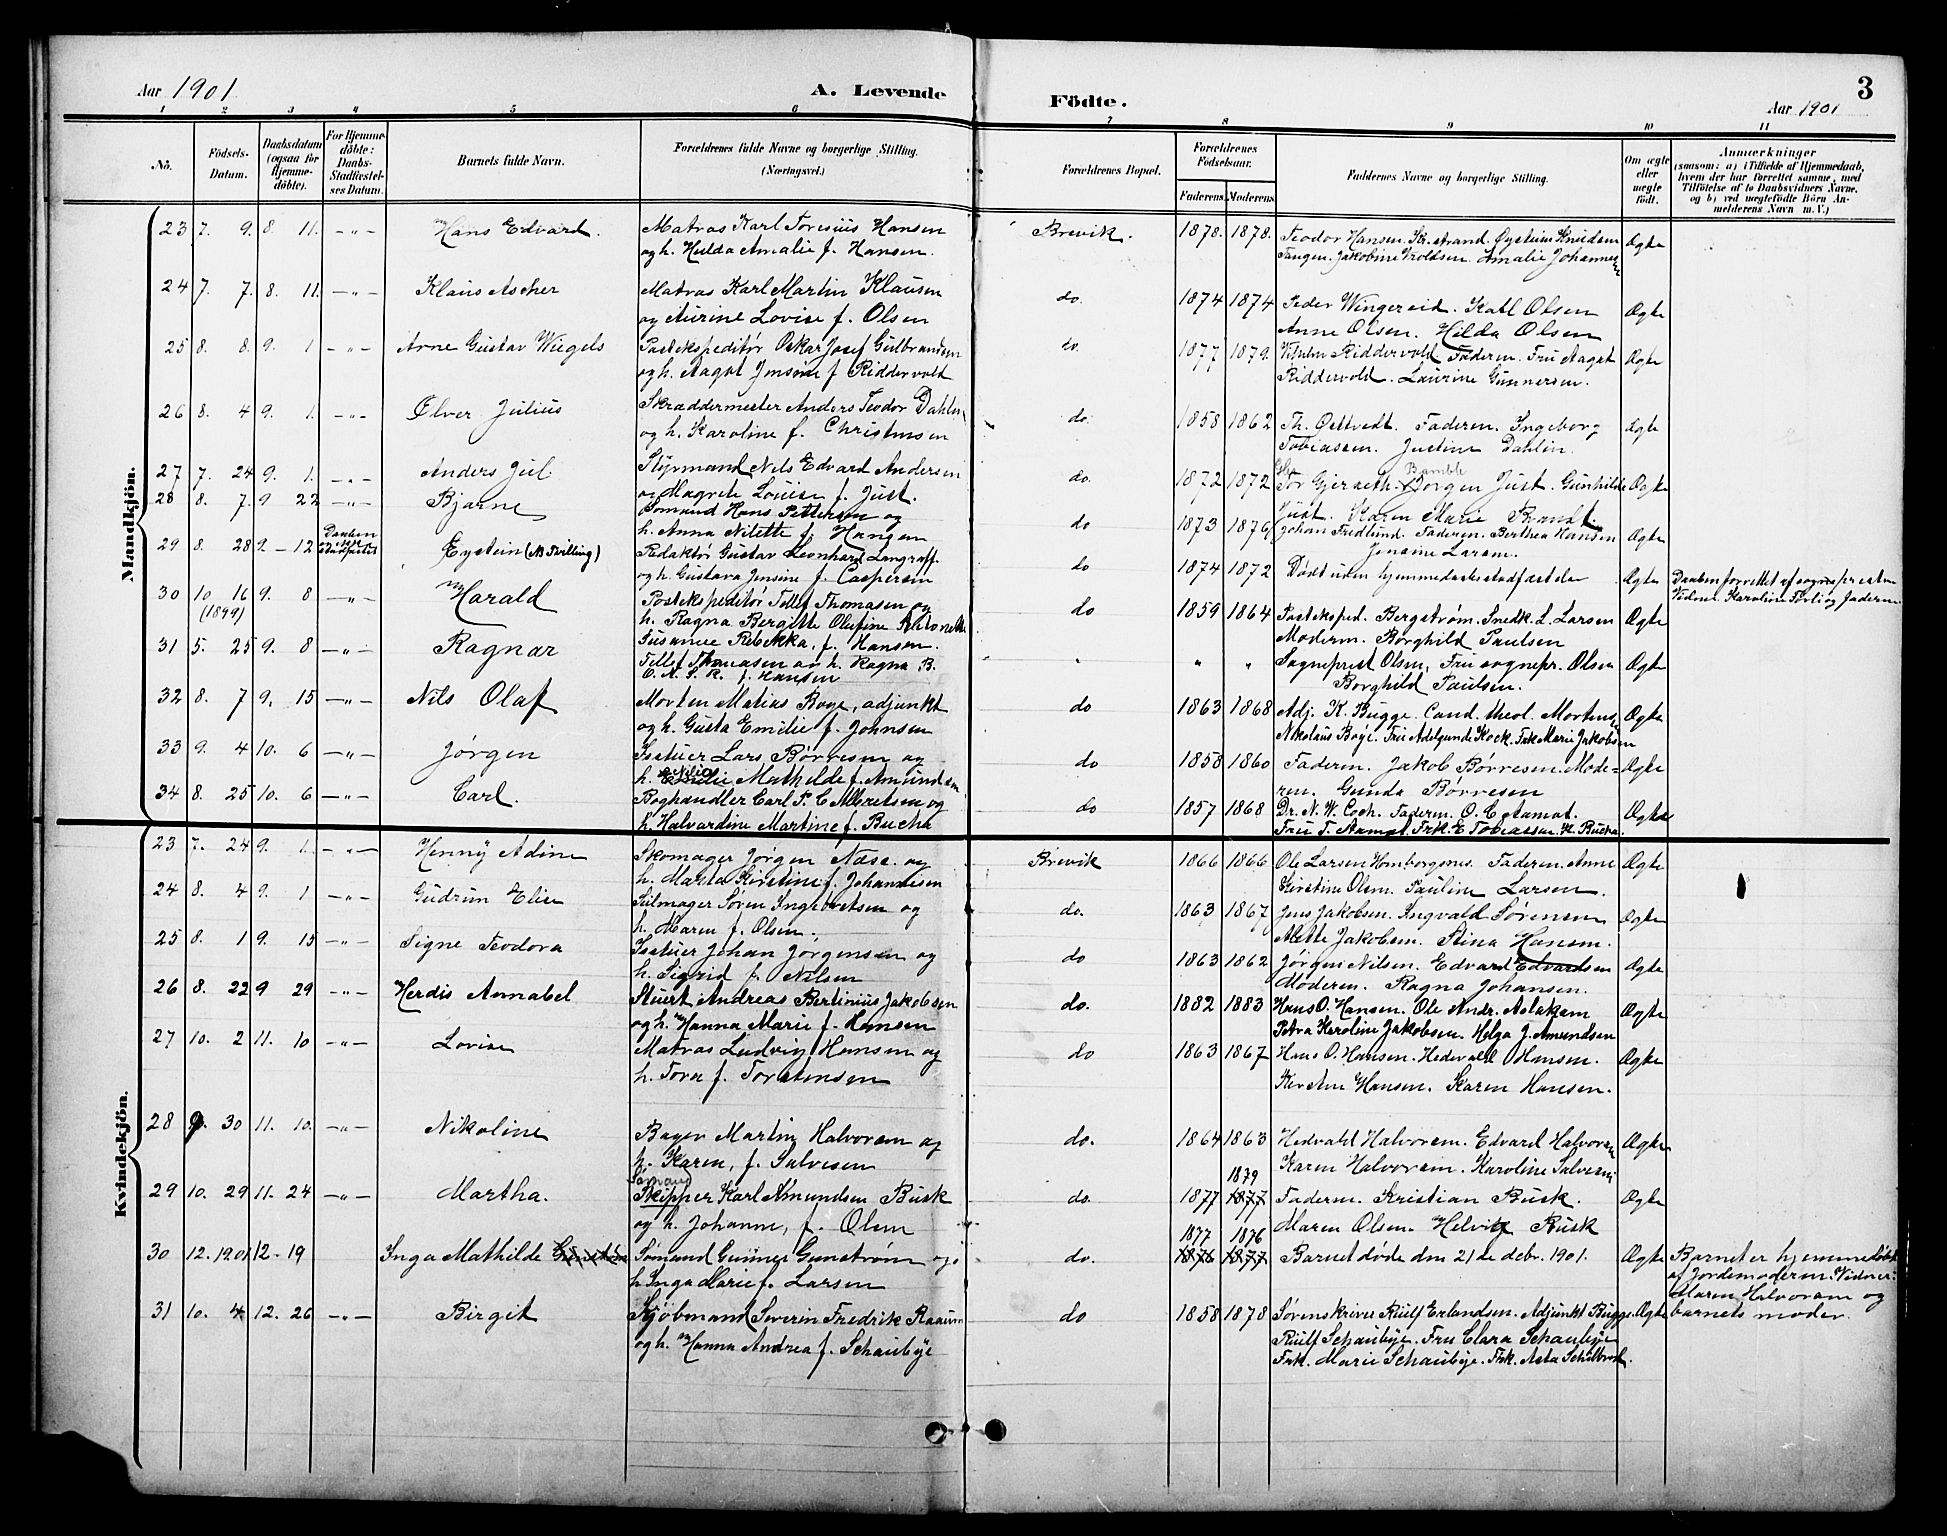 Aar 1901
A. Levende Födte.
Aar 1901
3
1 2 3 4 5 6 7 8 9 10 11
Nô.
Födsels-Datum.
Daabsdatum (ogsaa for Hjemme-döbte).
For Hjemme-döbte: Daabs-Stadfæstel-ses Datum.
Barnets fulde Navn.
Forældrenes fulde Navne og borgerlige Stilling. (Næringsvei.)
Forældrenes Bopæl.
Forældrenes Födselsaar.
Faderens. Moderens.
Faddernes Navne og borgerlige Stilling.
Om ægte eller uægte födt.
Anmærkninger
(saasom: a) i Tilfælde af Hjemmedaab, hvem der har forrettet samme, med Tilföielse af to Daabsvidners Navne, og b) ved uægtefödte Börn An-melderens Navn m. V.)
Mandkjön.
23 7. 9. 8. 11. -"- Hans Edvard. Matros Karl Toresius Hansen Brevik. 1878. 1878. Teodor Hansen. Kr.strand. Øystein Knudsen Ægte
og h. Hilda Amalie f. Hansen. Tangen. Jakobine Kroldsen. Amalie Johannesen
24 7. 7. 8. 11. -"- Klaus Ascher Matros Karl Martin Klausen do. 1874 1874 Peder Wingereid. Karl Olsen Ægte
og Aurine Lovise f. Olsen Anne Olsen. Hilda Olsen
25 8. 8. 9. 1. -"- Arne Gustav Wiegels Postekspeditør Oskar Josef Gulbrandsen do. 1877 1879. Vilhelm Riddervold. Faderen. Fru Aagot Ægte
og h. Aagot Jensine f. Riddervold Riddervold. Laurine Gunnersen.
26 8. 4 9. 1. -"- Elver Julius Skræddermester Anders Teodor Dahlin do. 1858 1862 Th. Osttvedt. Faderen. Ingeborg Ægte
og h. Karoline f. Christensen Tobiassen. Justine Dahlin.
27 7. 24 9. 1. -"- Anders Jul Styrmand Nils Edvard Andersen do. 1872 1872 Tor Gjerneth. Jörgen Just. Bamble Gunhilde Ægte
og Magrete Louise f. Just. Just. Karen Marie Brandt.
28 8. 7. 9 22 -"- Bjarne Sömand Hans Pettersen og do 1873 1876 Johan Fredlund. Faderen. Berthea Hansen Ægte
h. Anna Nilette f. Hangen Jensine Larsen.
29 8. 28 9. - 12 Daaben ikke stadfæstet Eystein (No Tvilling) Redaktör Gustav Leonhard Langraff do 1874 1872 Dødt uden hjemmedaabsstadfæstelse Ægte Daaben forrettet af sognepresten
og h. Gustava Jensine f. Caspersen Vidner Karoline Törli og Faderen
30 10 16 (1899) 9. 8 -"- Harald Postekspeditör Tellef Thomasen og do 1859 1864 Posteksped. Bergström. Snedk. L. Larsen Ægte
h. Ragna Bergitte Olufine Antonette Moderen. Borghild Paulsen
Susanne Rebekka, f. Hansen.
31 5. 25 9. 8 -"- Ragnar Tellef Thomasen og h. Ragna B. " " " Sogneprest Olsen, Fru sognepr. Olsen Ægte
O. A. S. R. f. Hansen Borghild Paulsen.
32 8. 7 9. 15 -"- Nils Olaf Morten Matias Boye, adjunkt do 1863 1868 Adj. K. Bugge. Cand. theol. Mortens Ægte
og h. Gusta Emilie f. Johnsen Nikolaus Boye. Fru Adelgunde Kock. Frk Marie Jakobsen
33 9. 4 10. 6 -"- Jørgen Isstuer Lars Børresen og do 1858 1860 Faderen. Jakob Børresen. Mode- Ægte
h. Emilie Mathilde f. Amundsen ren. Gunda Børresen
34 8. 25 10. 6 -"- Carl. Boghandler Carl P. C. Albretsen og do 1857 1868 Dr. N. W. Coch. Faderen. O. C. Aamot. Ægte
h. Halvardine Martine f. Bucha Fru T. Aamot. Frk. E. Tobiassen. H. Bucha.
Kvindekjön.
23 7. 24 9. 1. -"- Henny Adine Skomager Jørgen Næse. og Brevik 1866 1866 Ole Larsen Homborgsnes. Faderen. Anne Ægte
h. Marta Kirstine f. Johannesen Kirstine Olsen. Pauline Larsen.
24 8. 4 9. 1 -"- Gudrun Elise Seilmager Søren Ingebretsen og do. 1863 1867 Jens Jakobsen. Ingvald Sørensen Ægte
h. Maren f. Olsen. Alette Jakobsen. Stina Hansen.
25 8. 1 9. 15 -"- Signe Teodora Isstuer Johan Jørgensen og do 1863 1862 Jørgen Nilsen. Edvard Edvardsen Ægte
h. Sigrid f. Nilsen Moderen. Ragna Johansen.
26 8. 22 9 29 -"- Herdis Annabel Stuert Andreas Bertinius Jakobsen do. 1882 1883 Hans O. Hansen. Ole Andr. Aslaksen Ægte
og h. Hanna Marie f. Hansen Petra Karoline Jakobsen. Helga J. Amundsen
27 10. 2 11. 10 -"- Lovise Matros Ludvig Hansen og do 1863 1867 Hans O. Hansen. Hedevald Hansen. Ægte
h. Tora f. Torstensen Kirstine Hansen. Karen Hansen.
28 9. 30 11. 10. -"- Nikoline Bager Martin Halvorsen og do. 1864 1863 Hedvald Halvorsen. Edvard Halvorsen Ægte
h. Karen, f. Salvesen Karen Halvorsen. Karoline Salvesen
29 10. 29 11. 24 -"- Martha. Sömand Skipper Karl Amundsen Busk do. 1877 1879 1877 Faderen. Kristian Busk. Ægte
og h. Johanne, f. Olsen Maren Olsen. Helvig Busk
30 12. 1901 12-19 Inga Mathilde Gunström Sømand Gunner Gunstrøm og do. 1877 1876 1876 1877 Barnet døde den 21de debr. 1901. Ægte Barnet er hjemmedøbt
h. Inga Marie f. Larsen af Jordemoderen. Vidner:
Maren Halvorsen og
barnets moder.
31 10. 4 12. 26 -"- Birgit Kjøbmand Severin Fredrik Raaum do 1858 1878 Sørenskriver Rulf Erlandsen. Adjunkt Bugge. Ægte
og h. Hanna Andrea f. Schaubye Rulf Schaubye. Fru Clara Schaubye
Frk. Marie Schaubye. Frk. Asta Schülbrod.